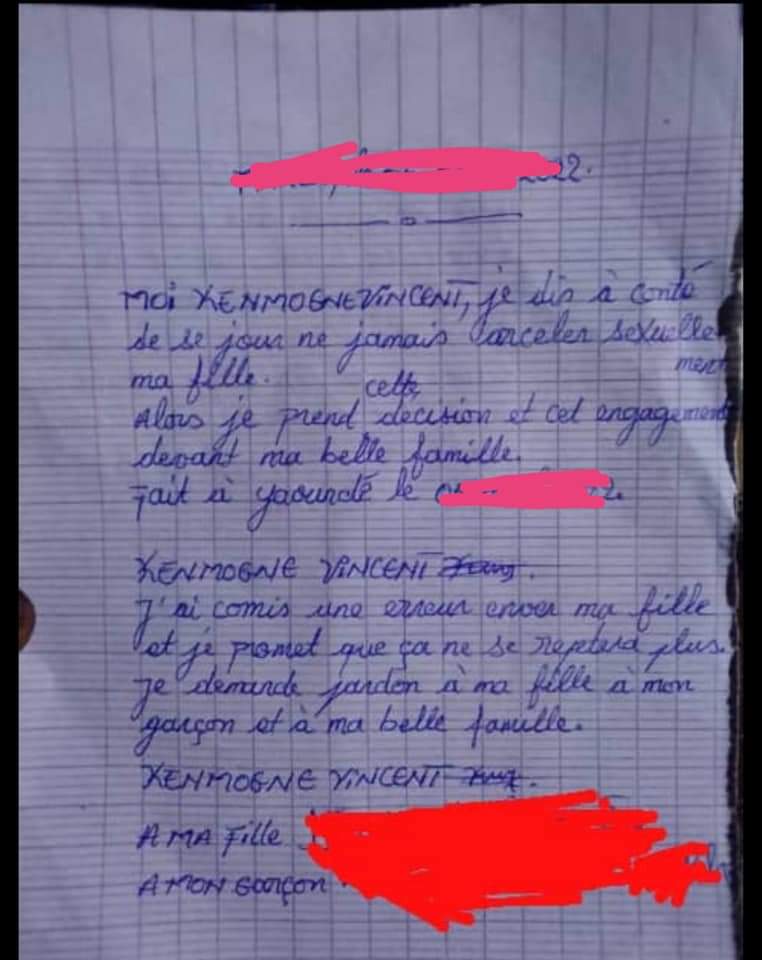 2022.
Moi KENMOGNE VINCENT, je dis à conté
de se jour ne jamais arceler sexuelle
ment
ma fille.
cette
Alors je prend decision et cet engagement
devant ma belle famille.
Fait à yaoundé le
KENMOGNE VINCENT
J'ai comis une erreur enver ma fille
et je promet que ça ne se repetera plus.
Je demande pardon à ma fille à mon
garçon et à ma belle famille.
KENMOGNE VINCENT
A MA Fille
A MON GARçON